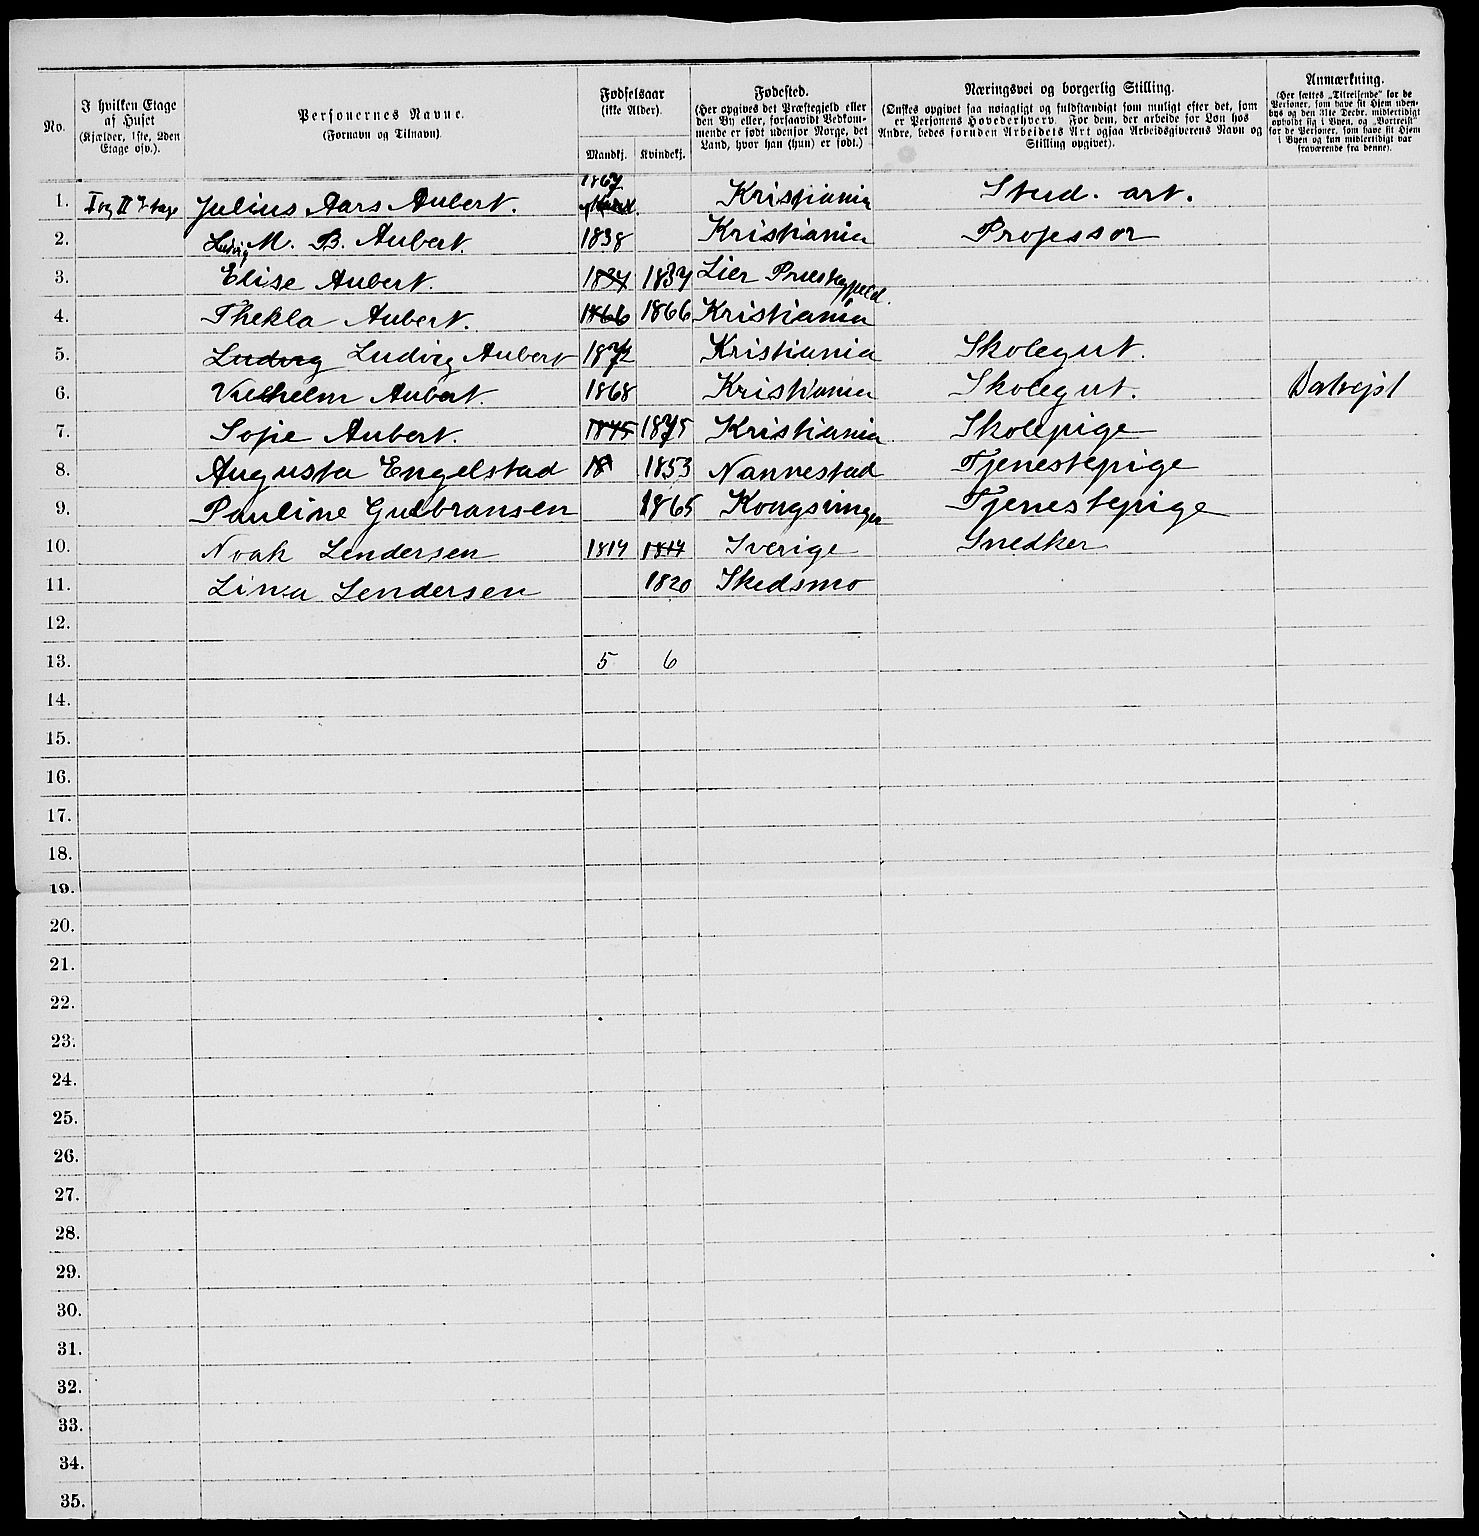 No.
I hvilken Etage af Huset (Kjælder, 1ste, 2den Etage osv.).
Personernes Navne. (Fornavn og Tilnavn).
Fødselsaar (ikke Alder).
Mandkj. Kvindekj.
Fødested. (Her opgives det Præstegjeld eller den By eller, forsaavidt Vedkommende er født udenfor Norge, det Land, hvor han (hun) er født.)
Næringsvei og borgerlig Stilling. (Ønskes opgivet saa nøiagtigt og fuldstændigt som muligt efter det, som er Personens Hovederhverv. For dem, der arbeide for Løn hos Andre, bedes foruden Arbeidets Art ogsaa Arbeidsgiverens Navn og Stilling opgivet).
Anmærkning. (Her sættes „Tilreisende“ for de Personer, som have sit Hjem udenbys og den 31te Decbr. midlertidigt opholdt sig i Byen, og „Bortreist“ for de Personer, som have sit Hjem i Byen og kun midlertidigt var fraværende fra denne).
1. I og II Etage Julius Aars Aubert. 1867 Kristiania Stud. art.
2. Ludvig M. B. Aubert. 1838 Kristiania Professor
3. Elise Aubert. 1837 1837 Lier Præstegjeld.
4. Thekla Aubert. 1866 1866 Kristiania
5. Ludvig Ludvig Aubert 1872 Kristiania Skolegut.
6. Vilhelm Aubert. 1868 Kristiania Skolegut.
7. Sofie Aubert. 1875 1875 Kristiania Skolepige
8. Augusta Engelstad 18 1853 Nannestad Tjenestepige
9. Pauline Gulbransen 1865 Kongsvinger Tjenestepige
10. Noah Lendersen 1817 1817 Sverige Snedker
11. Lina Lendersen 1820 Skedsmo
12.
13. 5 6
14.
15.
16.
17.
18.
19.
20.
21.
22.
23.
24.
25.
26.
27.
28.
29.
30.
31.
32.
33.
34.
35.